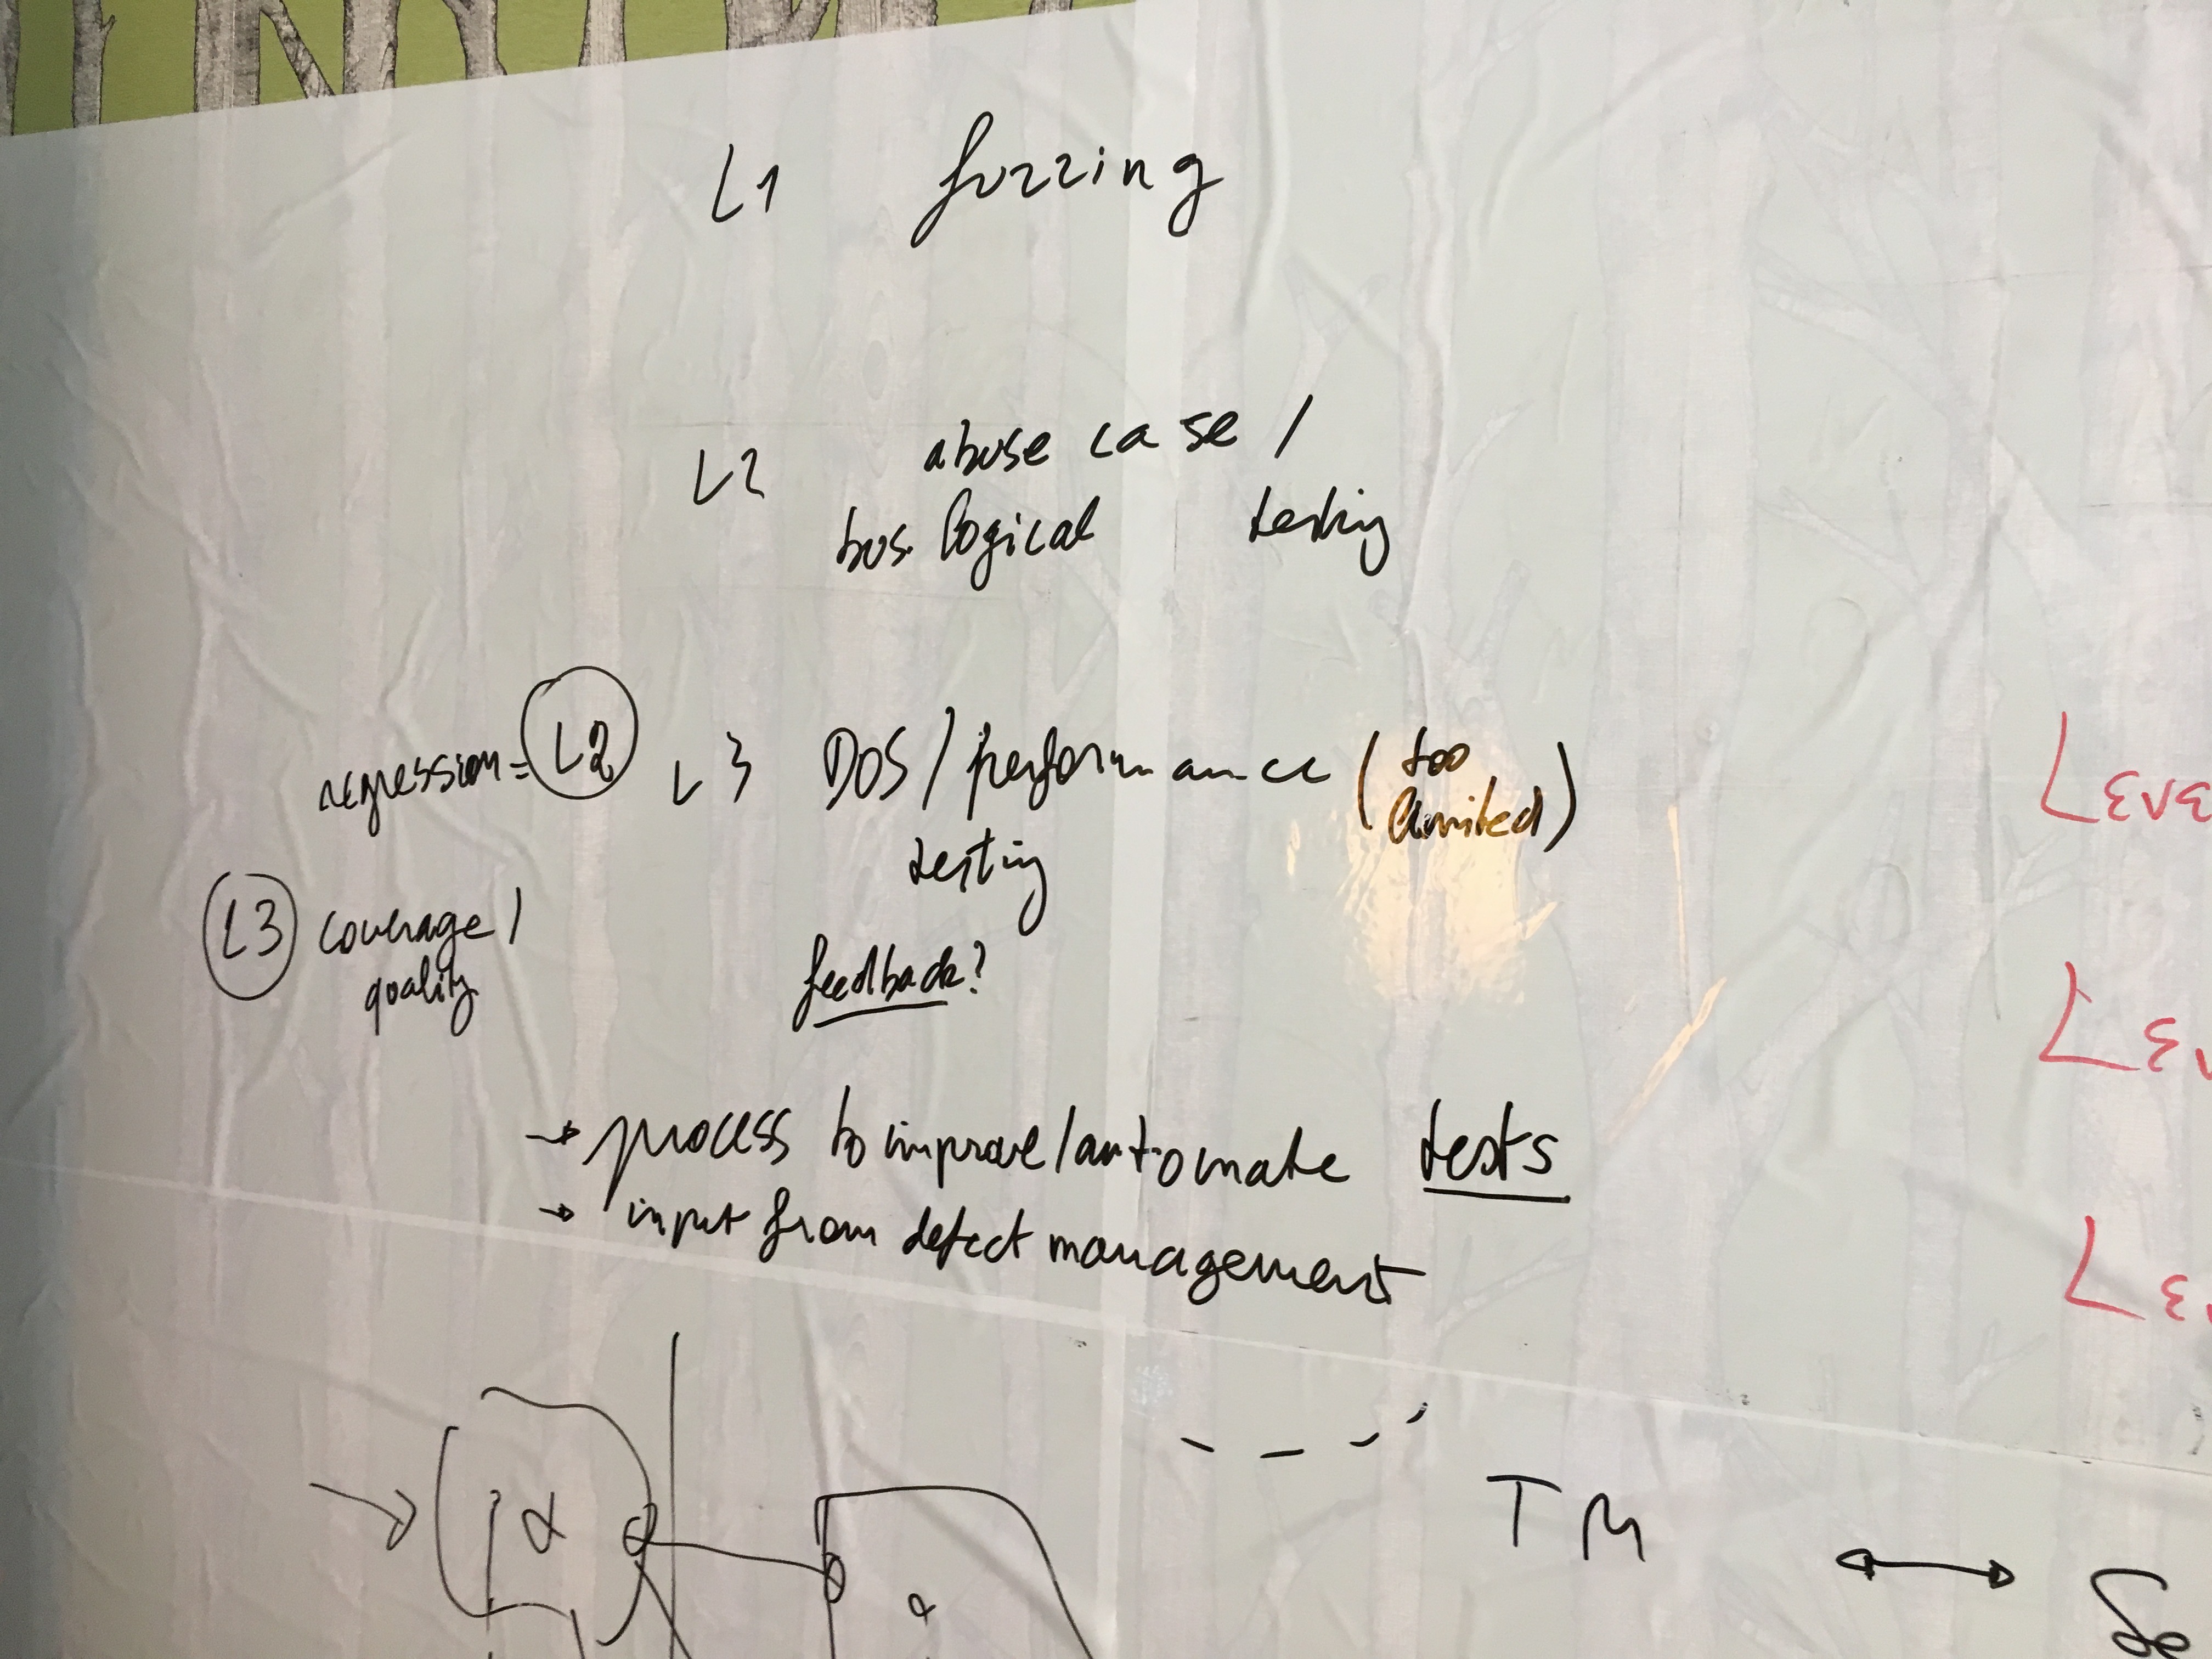 L1 fuzzing
L2 abuse case /
bus. logical testing
regression = L2
L3 DOS / performance (too
limited)
testing
L3 coverage /
quality
feedback?
→ process to improve/automate tests
→ input from defect management
LEVE
LEV
LEV
α
α
TM
↔